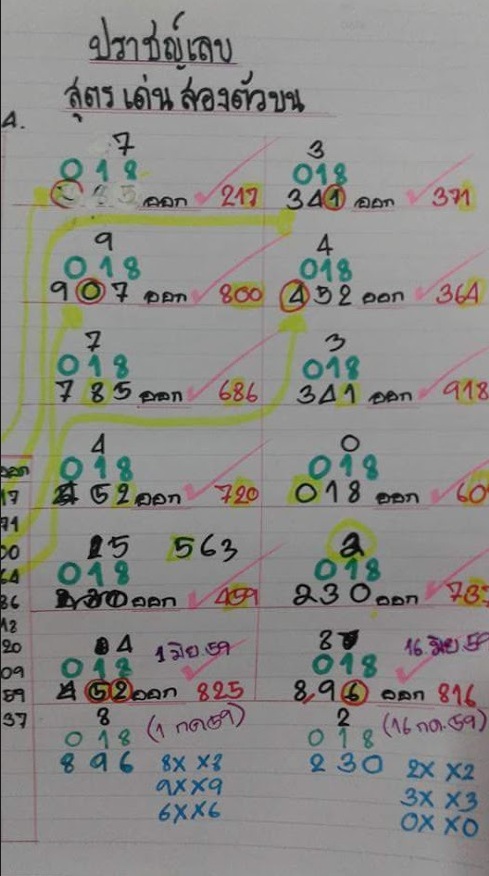 ปราชญ์เลข
สูตร เด่น สองตัวบน
4.
7
018
ออก 217
3
018
341 ออก 371
9
018
907 ออก 800
4
018
452 ออก 364
7
018
785 ออก 686
3
018
341 ออก 918
4
018
52 ออก 720
0
018
018 ออก 60
5 563
018
ออก 459
2
018
230 ออก 787
4 1 มิย.59
018
452 ออก 825
8 16 มิย 59
018
896 ออก 816
8 (1 กค 59)
018
896 8X X8
9XX9
6XX6
2 (16 กค.59)
018
230 2X X2
3X X3
0X X0
ออก
17
71
00
64
86
18
20
09
59
37